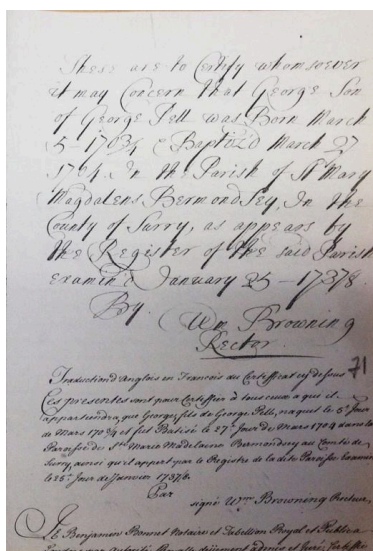 These are to Certify whomsoever
it may Concern that George Son
of George Pell was Born March
5 - 1703/4 & Baptiz'd March 27
1704. In the Parish of St Mary
Magdalens Bermondsey, In the
County of Surry, as appears by
the Register of the said Parish
Examin'd January 25 - 1737/8
By
Wm Browning
Rector
71
Traduction d'Anglois en Francois du Certifficat cy dessous
Ces presentes sont pour Certiffier a tous ceux a qui il
appartiendra, que George, fils de George Pell, naquit le 5e Jour
de Mars 1703/4 et fut Batisé le 27e Jour de Mars 1704 dans la
Paroisse de Ste Marie Madelaine Bermondsey au Comté de
Surry, ainsi qu'il appert par le Registre de la dite Paroisse Examiné
le 25e Jour de Janvier 1737/8.
Par
signé Wm Browning Recteur,
Je Benjamin Bonnet Notaire et Tabellion Royal et Public a
Londres par Autorité Royalle düement admis et juré, Certiffie